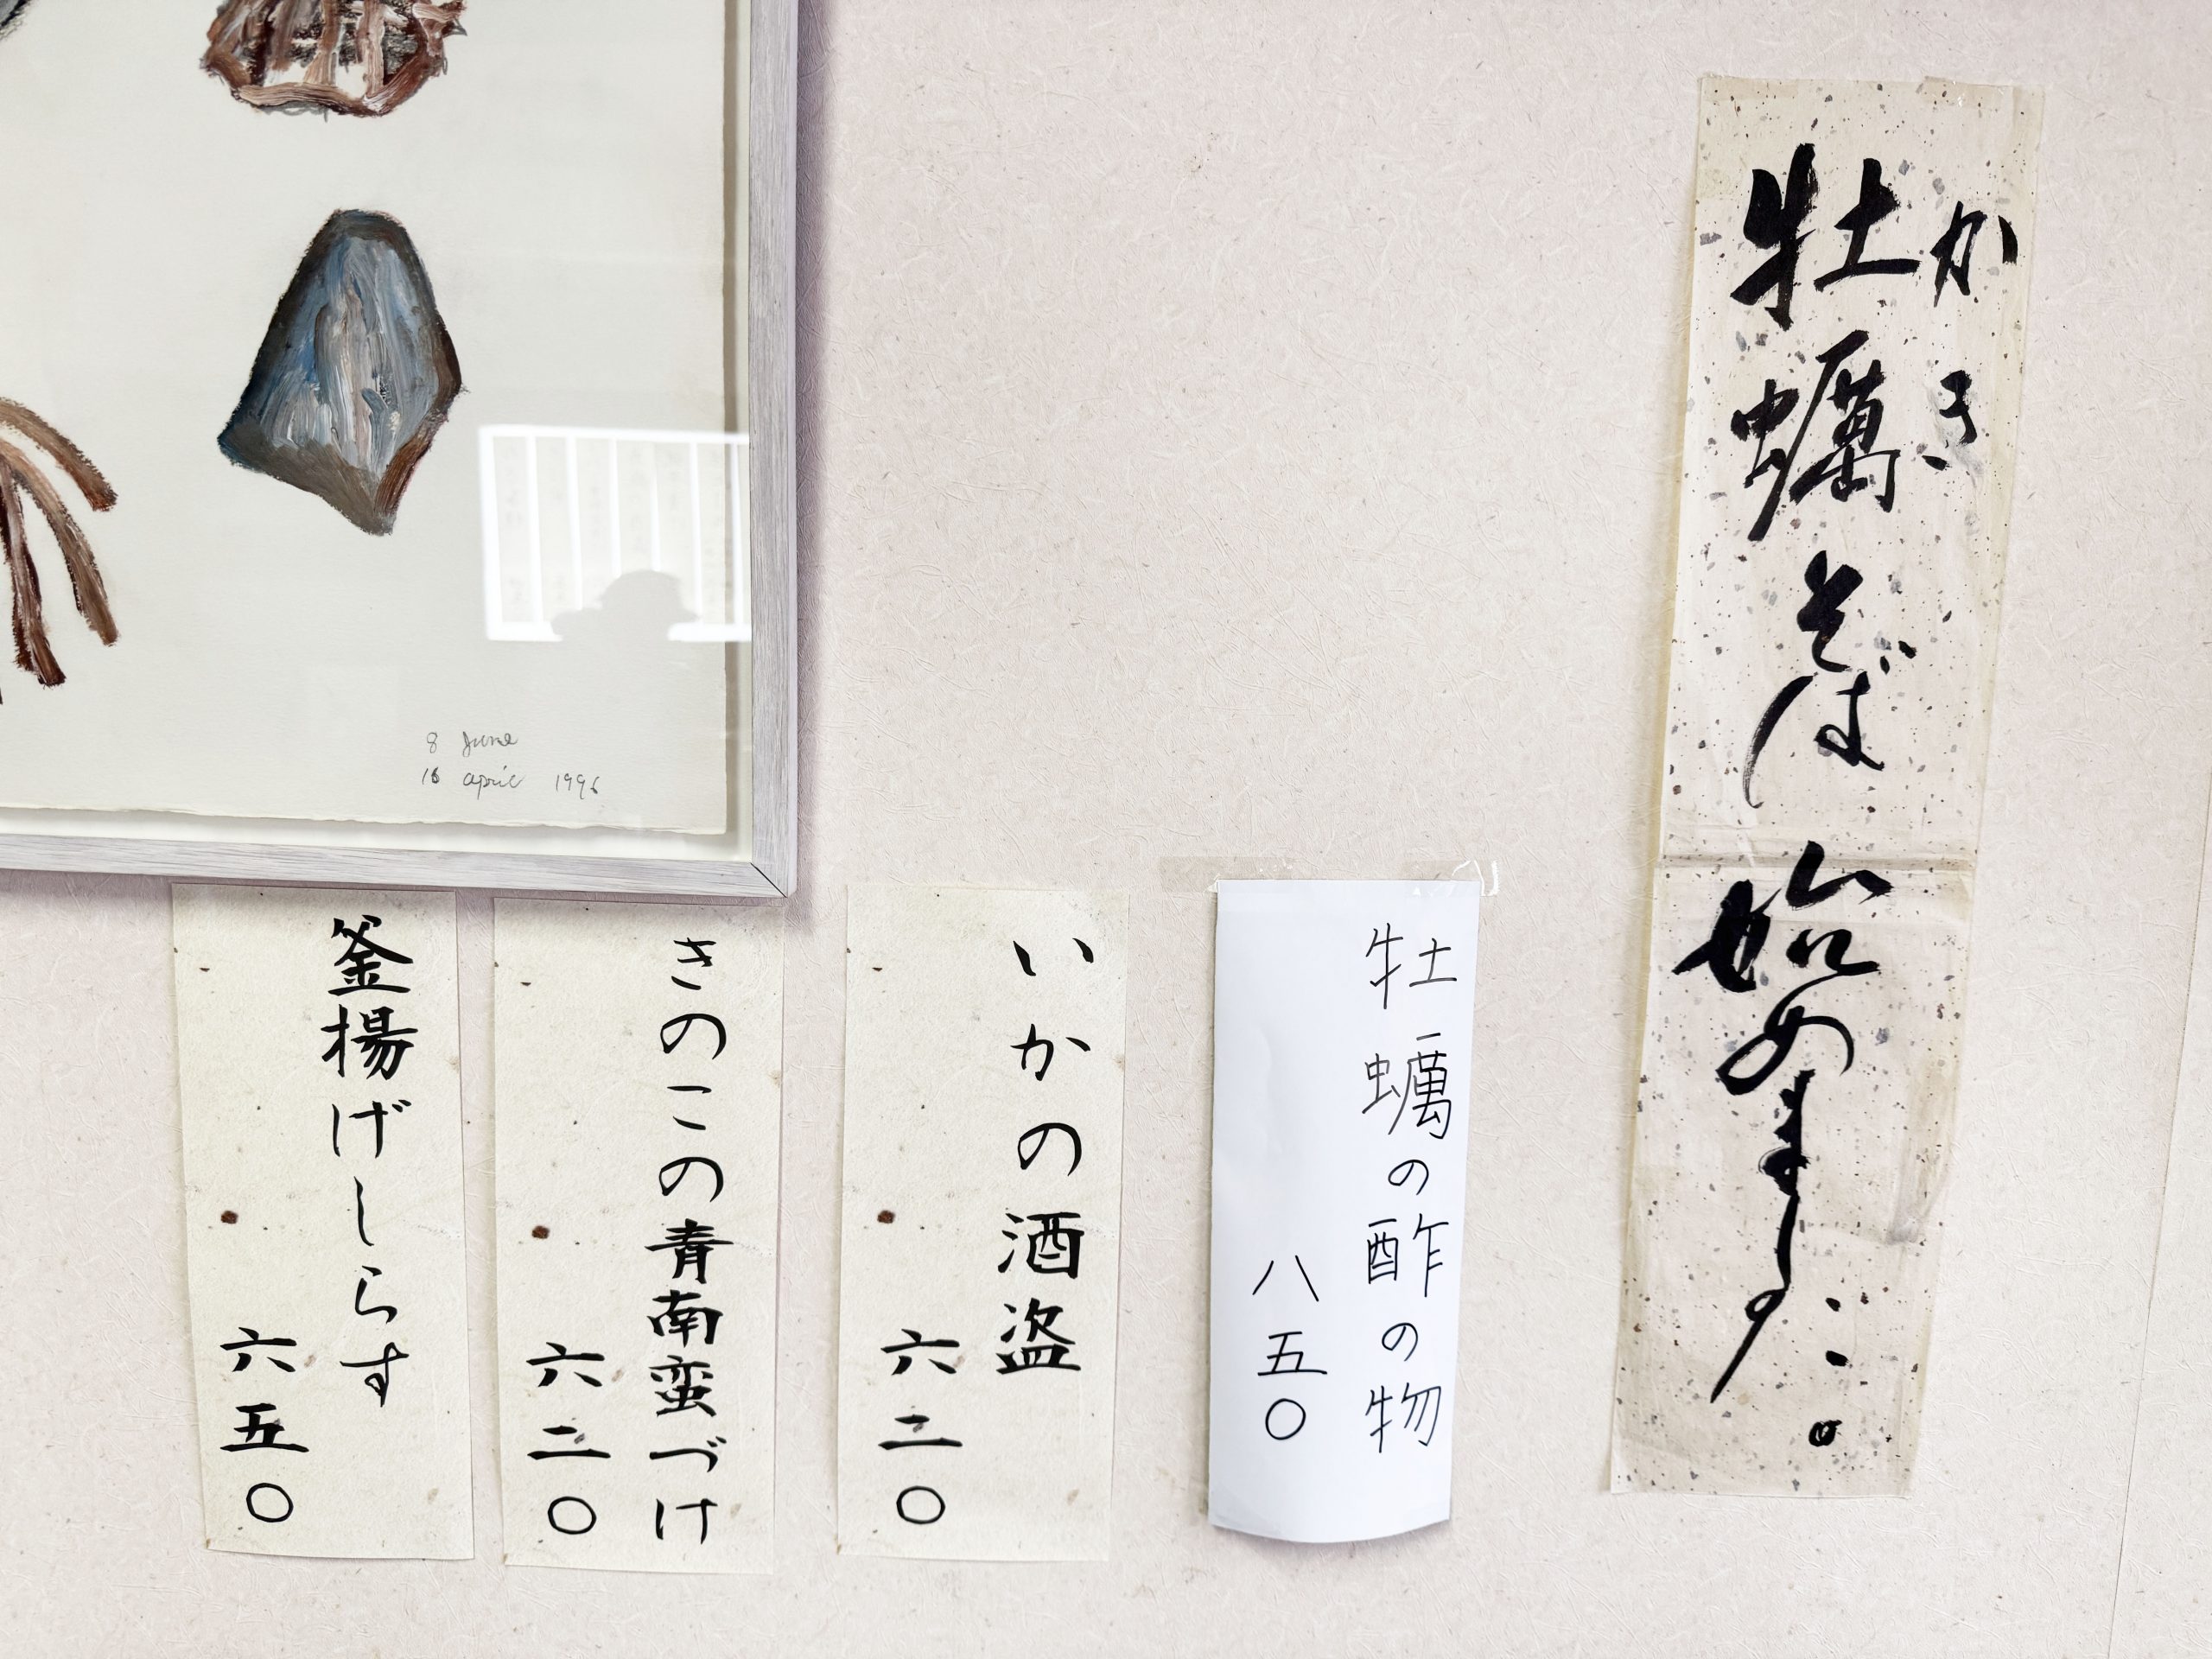 かき
牡蠣そば
始めました。
牡蠣の酢の物
八五〇
いかの酒盗
六二〇
きのこの青南蛮づけ
六二〇
釜揚げしらす
六五〇
8 June
16 april 1996